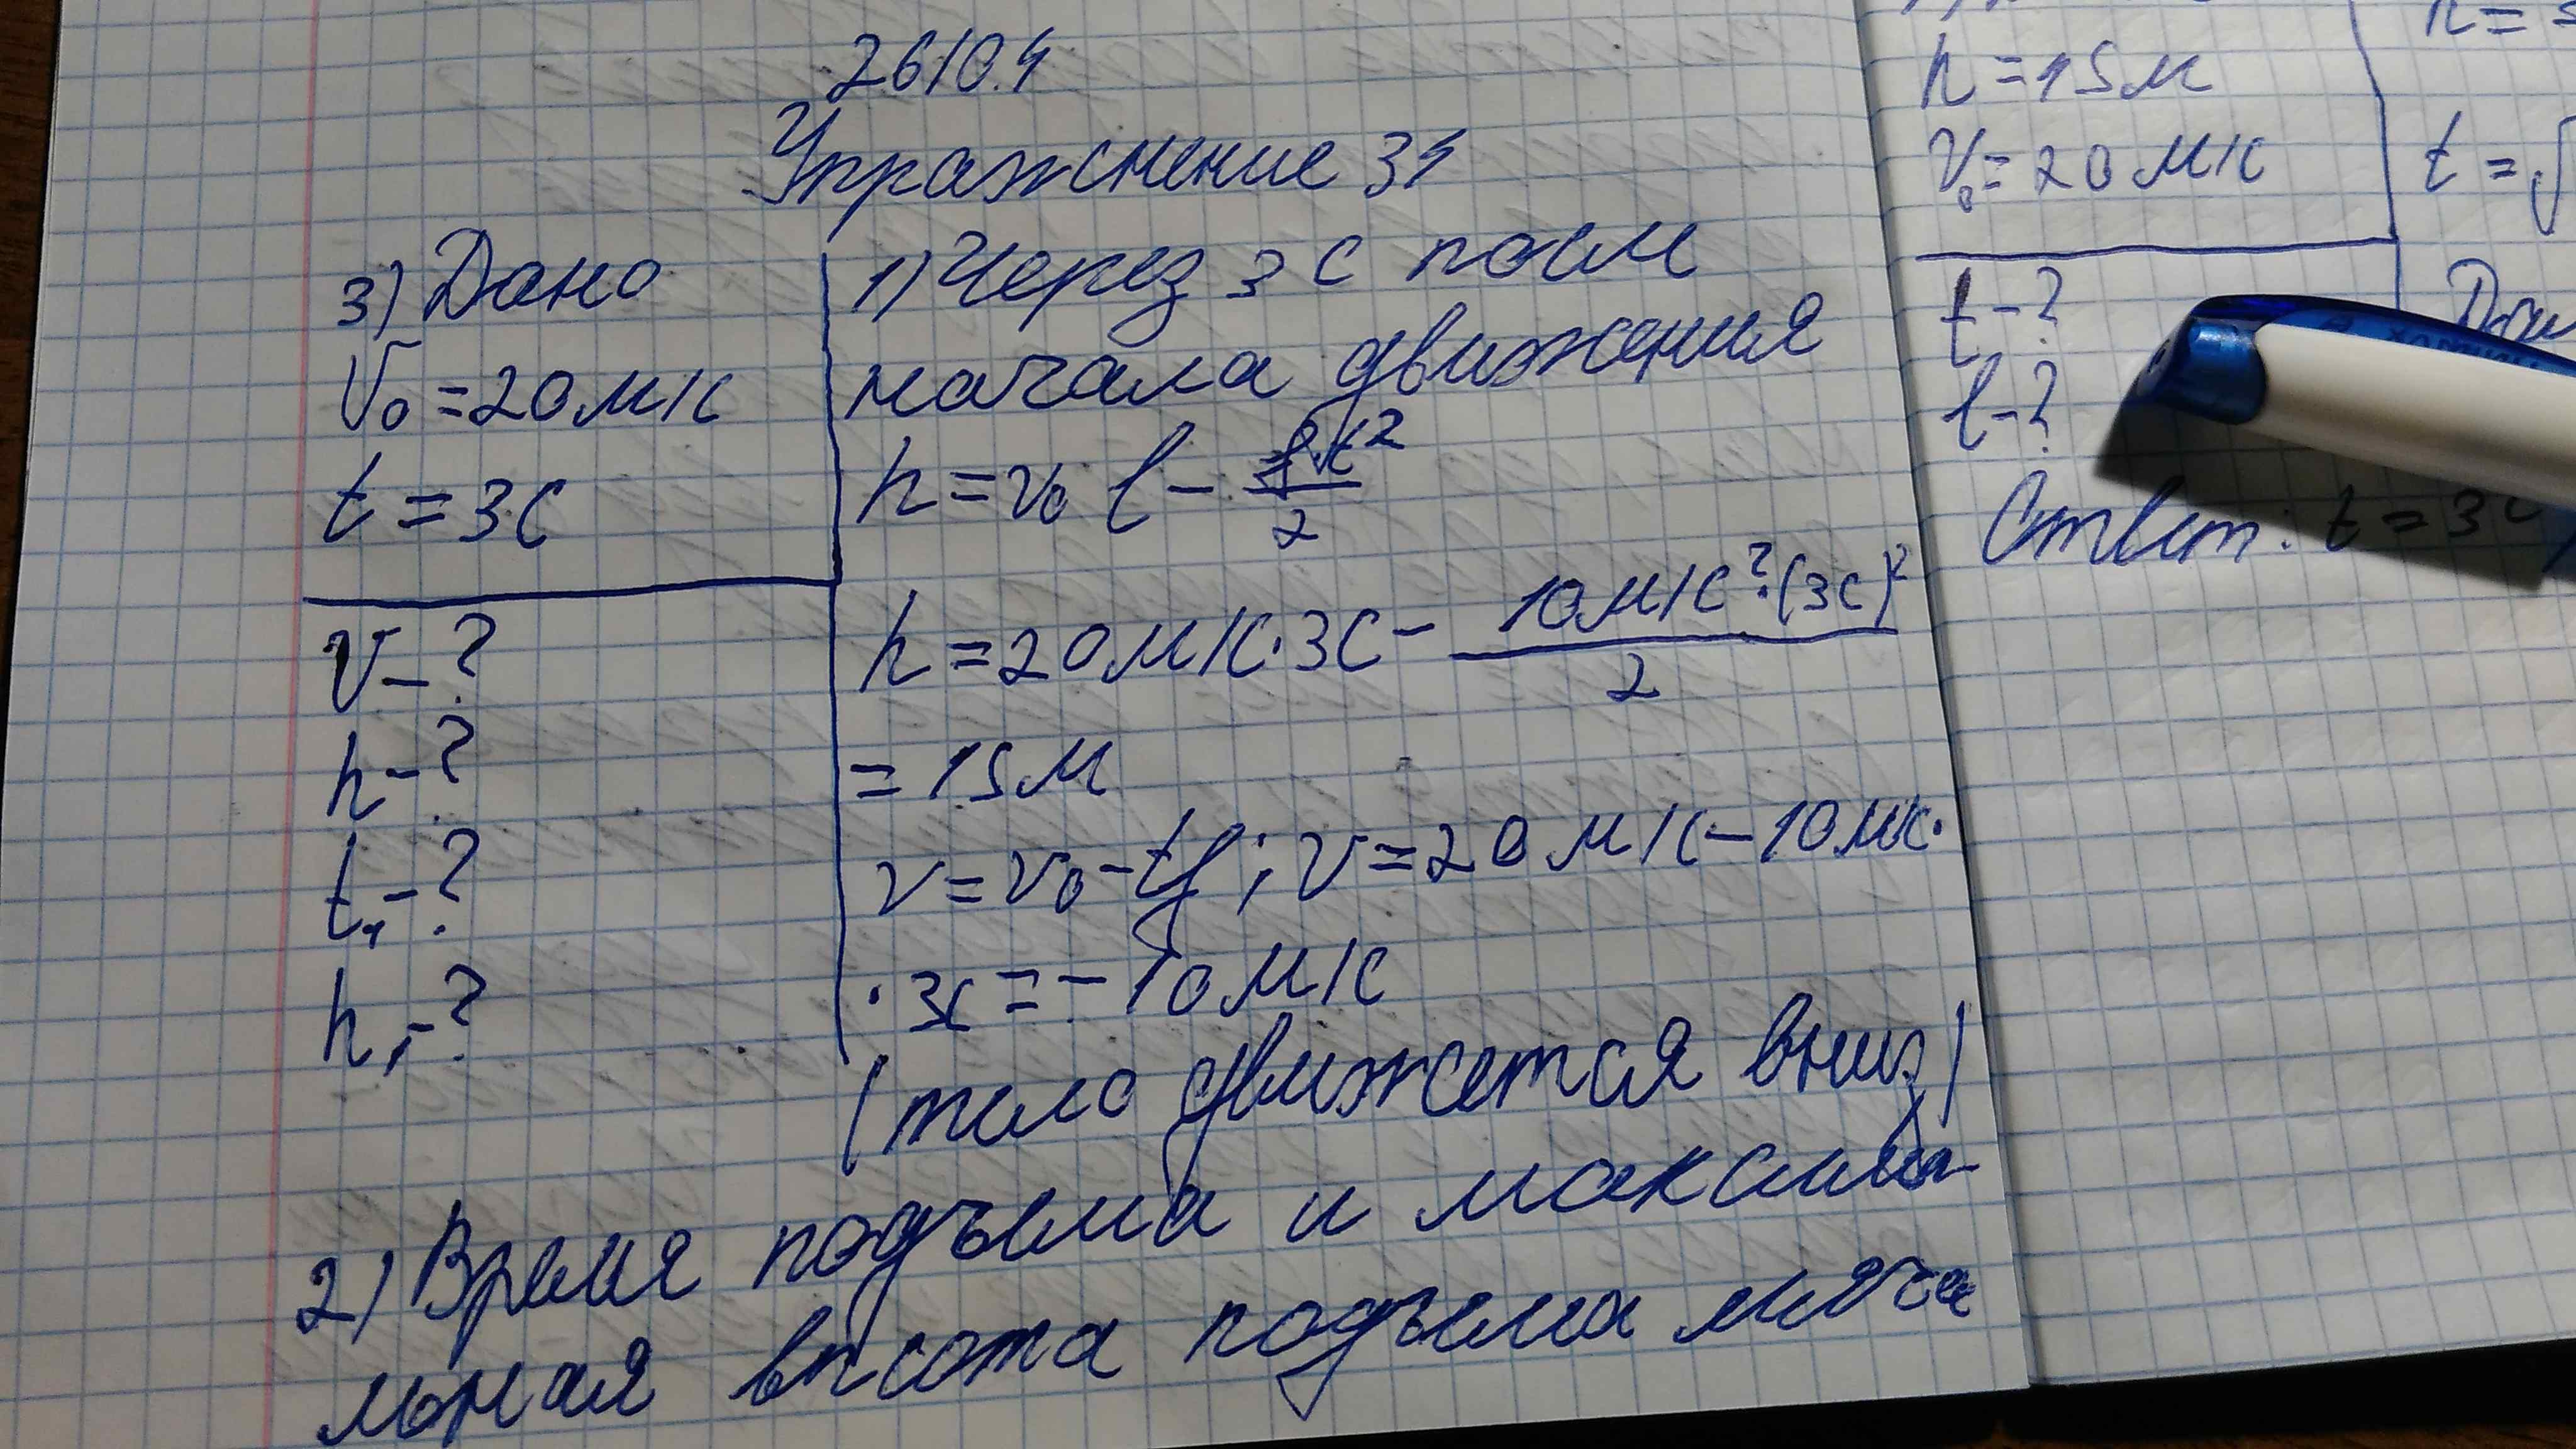 Упражнение 34
3) Дано
V₀ = 20 м/с
t = 3с
V - ?
h - ?
t₁ - ?
h₁ - ?
1) Через 3 с посл
начала движения
h = v₀ t - gt²/2
h = 20 м/с · 3с - 10 м/с² · (3с)²/2
= 15 м
v = v₀ - tg; v = 20 м/с - 10 м/с ·
· 3с = -10 м/с
(тело движется вниз)
2) Время подъема и максима-
льная высота подъема мяча
h = 15 м
V₀ = 20 м/с
t - ?
l - ?
Ответ: t = 3с
h =
t = √